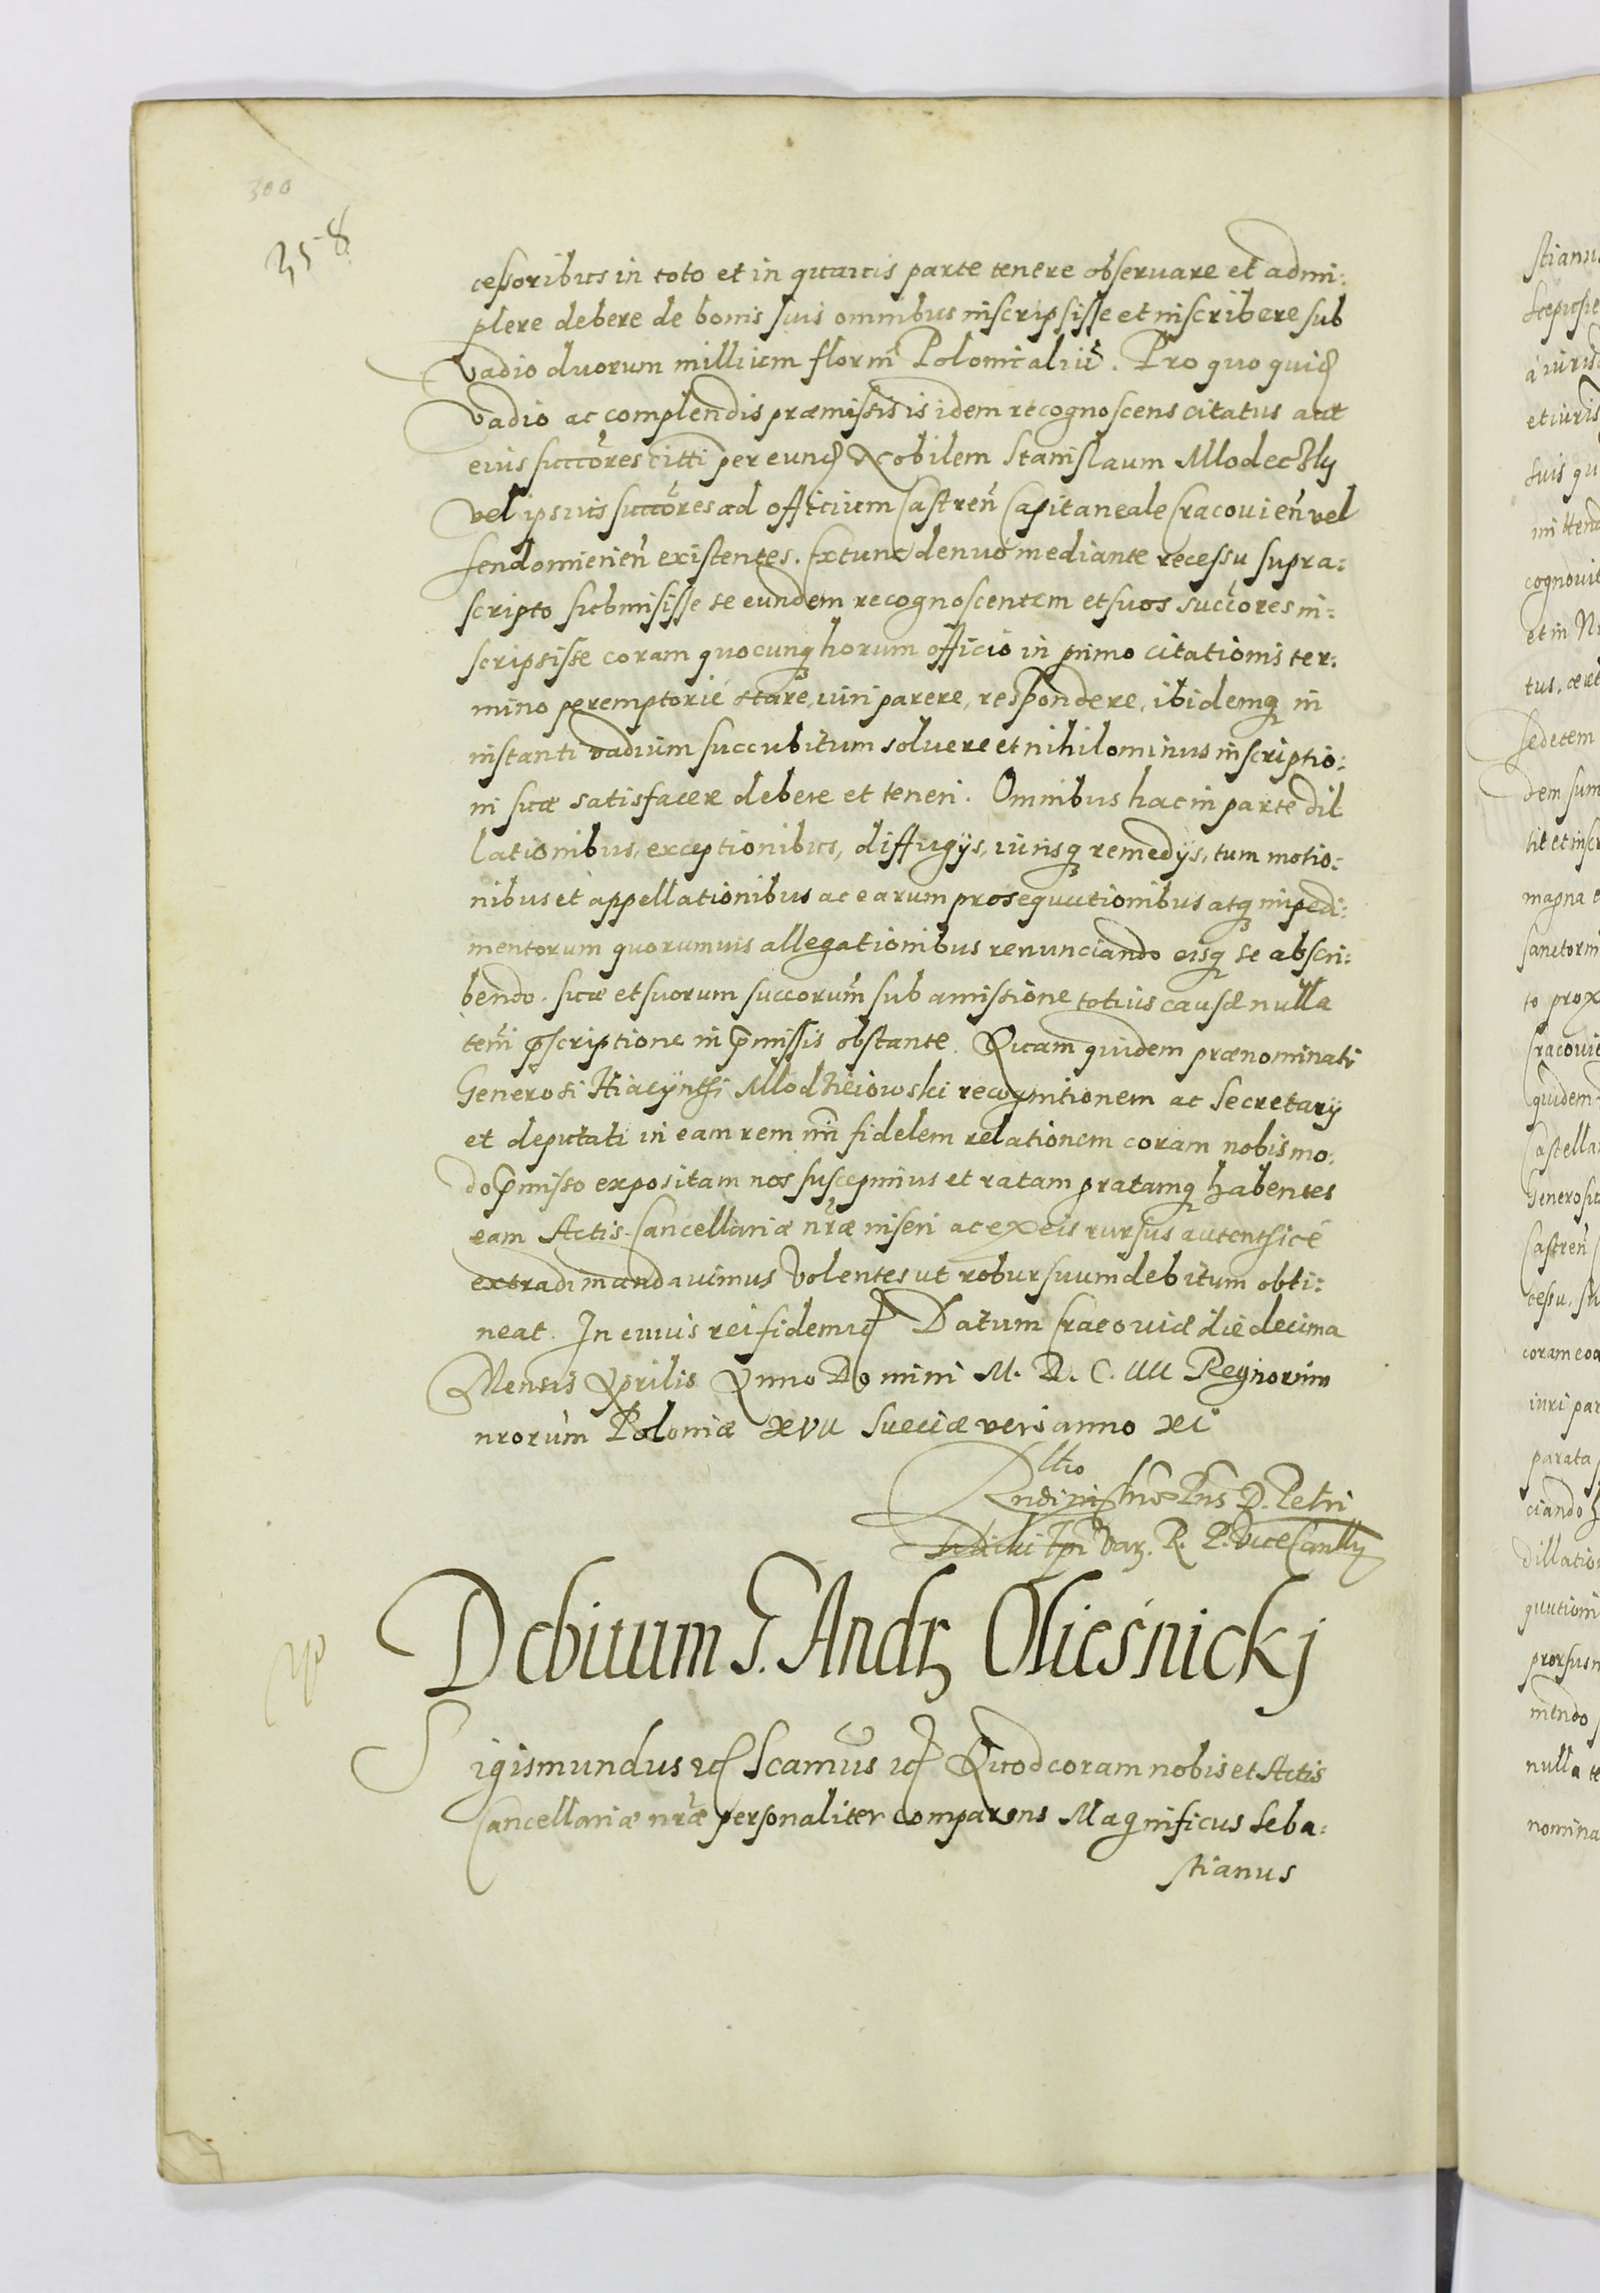 300
358
cessoribus in toto et in quavis parte tenere observare et admi:
plere debere de bonis suis omnibus inscripsisse et inscribere sub
vadio duorum millium florñ Polonicaliũ. Pro quo quiđ
vadio ac complendis præmissis is idem recognoscens citatus aut
eius succõres citti per eunđ Nobilem Stanislaum Mlodeczky
vel ipsius succõres ad officium Castreñ Capitaneale Cracovieñ vel
Sendomirieñ existentes. Extunc denuò mediante recessu supra:
scripto submisisse se eundem recognoscentem et suos succõres in:
scripsisse coram quocunq horum officio in primo citationis ter:
mino peremptoriè stare, iuri parere, respondere, ibidemq in
instanti vadium succubitum solvere et nihilominus inscriptio:
ni suæ satisfacere debere et teneri. Omnibus hac in parte dil
lationibus, exceptionibus, diffugijs, iurisq remedijs, tum motio:
nibus et appellationibus ac earum prosequutionibus atq impedi:
mentorum quorumvis allegationibus renunciando eisq se abscri:
bendo. suæ et suorum succorum̃ sub amissione totius causæ nulla
terrñ pscriptione in pmissis obstante. Quam quidem prænominati
Generosi Hiacynthi Mlodzieiowski recognitionem ac Secretarij
et deputati in eam rem nri fidelem relationem coram nobis mo:
do pmisso expositam nos suscepimus et ratam gratamq habentes
eam Actis Cancellariæ nræ inseri ac ex eis rursus autenthicè
extradi mandavimus volentes ut robur suum debitum obti:
neat. In cuius rei fidem ıc Datum Cracoviæ die decima
Mensis Aprilis Anno Domini M. D. C. IIII Regnorum
nrorum Poloniæ XVII Sueciæ verò anno XI
Rltio
D. Petri
R. P. ViceCancllrij
Debitum G. Andr Oliesnickj
Sigismundus ıc Scamus ıc Quod coram nobis et Actis
Cancellariæ nræ personaliter comparens Magnificus Seba:
stianus